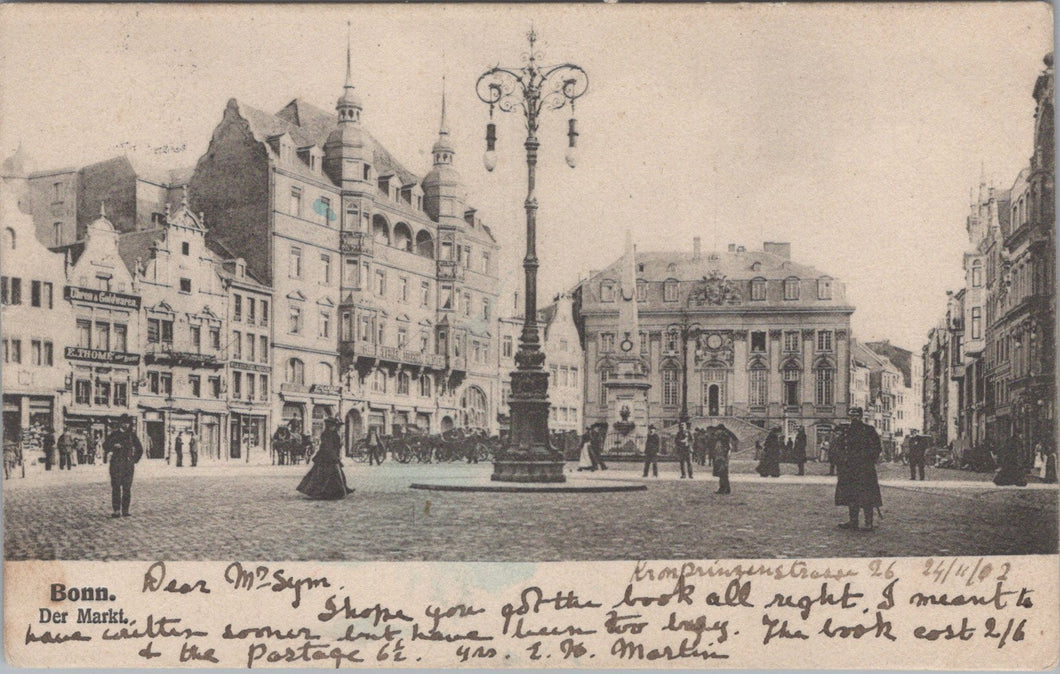 Uhren & Goldwaren.
E. THOMÉ
Bonn.
Der Markt.
Kronprinzenstrasse 26 24/11/02
Dear Mr Sym.
I hope you got the book all right. I meant to
have written sooner but have been too busy. The book cost 2/6
& the Postage 6½. yrs. E. H. Martin